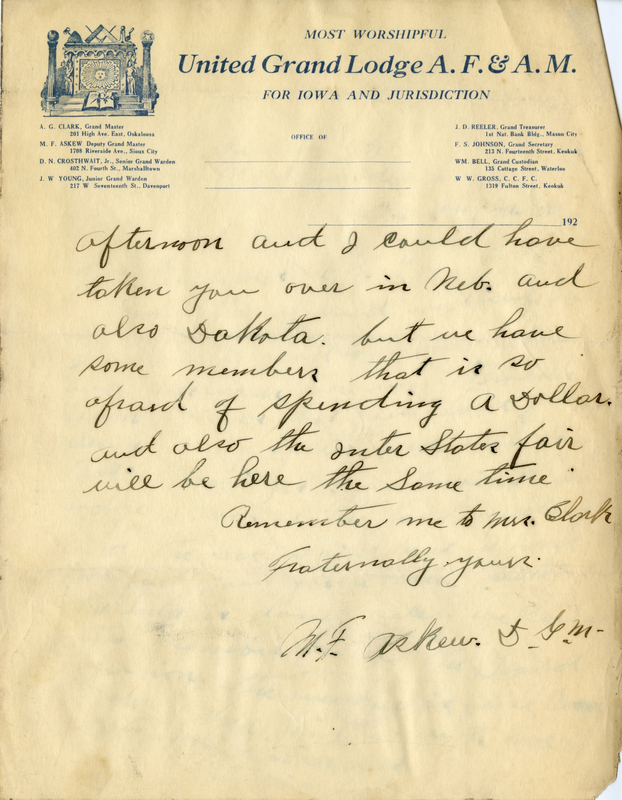 MOST WORSHIPFUL
United Grand Lodge A. F. & A. M.
FOR IOWA AND JURISDICTION
A. G. CLARK, Grand Master
201 High Ave. East, Oskaloosa
M. F. ASKEW Deputy Grand Master
1708 Riverside Ave., Sioux City
D. N. CROSTHWAIT, Jr., Senior Grand Warden
402 N. Fourth St., Marshalltown
J. W. YOUNG, Junior Grand Warden
217 W Seventeenth St., Davenport
OFFICE OF
J. D. REELER, Grand Treasurer
1st Nat. Bank Bldg., Mason City
F. S. JOHNSON, Grand Secretary
213 N. Fourteenth Street, Keokuk
WM. BELL, Grand Custodian
135 Cottage Street, Waterloo
W. W. GROSS, C. C. F. C.
1319 Fulton Street, Keokuk
192
afternoon and I could have
taken you over in Neb. and
also Dakota. but we have
some members that is so
afraid of spending a Dollar.
and also the inter States fair
will be here the Same time
Remember me to Mrs. Clark
Fraternally yours.
M. F. Askew. D. G. M.